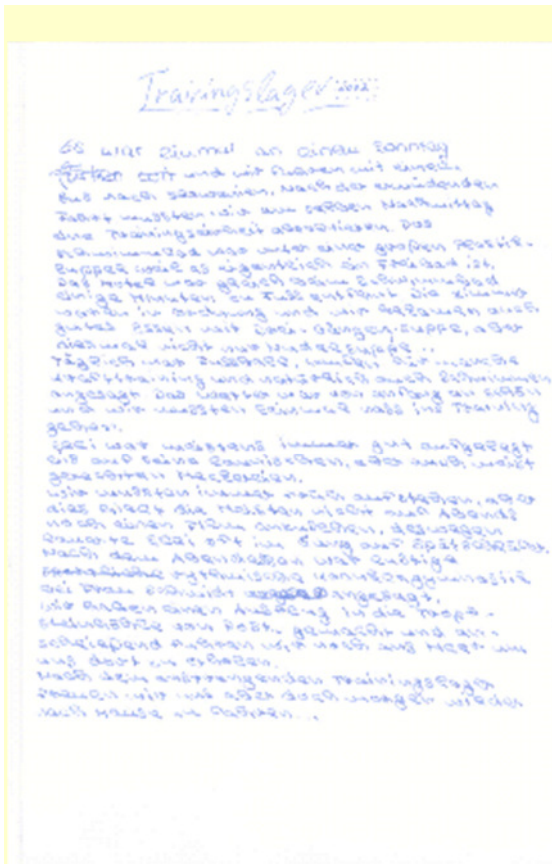 Trainingslager 2002
Es war einmal an einem Sonntag
und wir fuhren mit einem
Bus nach Slowenien. Nach der ermüdenden
Fahrt mussten wir am selben Nachmittag
eine Trainingseinheit absolvieren. Das
Schwimmbad war unter einer großen Plastik-
kuppel weil es eigentlich ein Freibad ist.
Das Hotel war gleich beim Schwimmbad
einige Minuten zu Fuß entfernt. Die Zimmer
waren in Ordnung und wir bekamen auch
gutes Essen mit Drei-Gängen, Suppe, aber
diesmal nicht nur Nudelsuppe..
Täglich war Fußball, laufen, für manche
Krafttraining und natürlich auch Schwimmen
angesagt. Das Wetter war von Anfang an schön
und wir mussten keinmal nass ins Training
gehen.
war meistens immer gut aufgelegt
bis auf seine
Wir mussten immer früh aufstehen, aber
dies hielt die Meisten nicht auf Abends
noch einen Film anzusehen, deswegen
lauerte oft im Gang auf Spätseher.
Nach dem Abendessen war lustige
rythmische
bei Frau Schmidt angesagt.
Wir haben einen Ausflug in die Tropf-
steinhöhle von gemacht und an-
schließend fuhren wir noch ans Meer um
uns dort zu erholen.
Nach dem anstrengenden Trainingslager
freuen wir uns aber doch morgen wieder
nach Hause zu fahren...